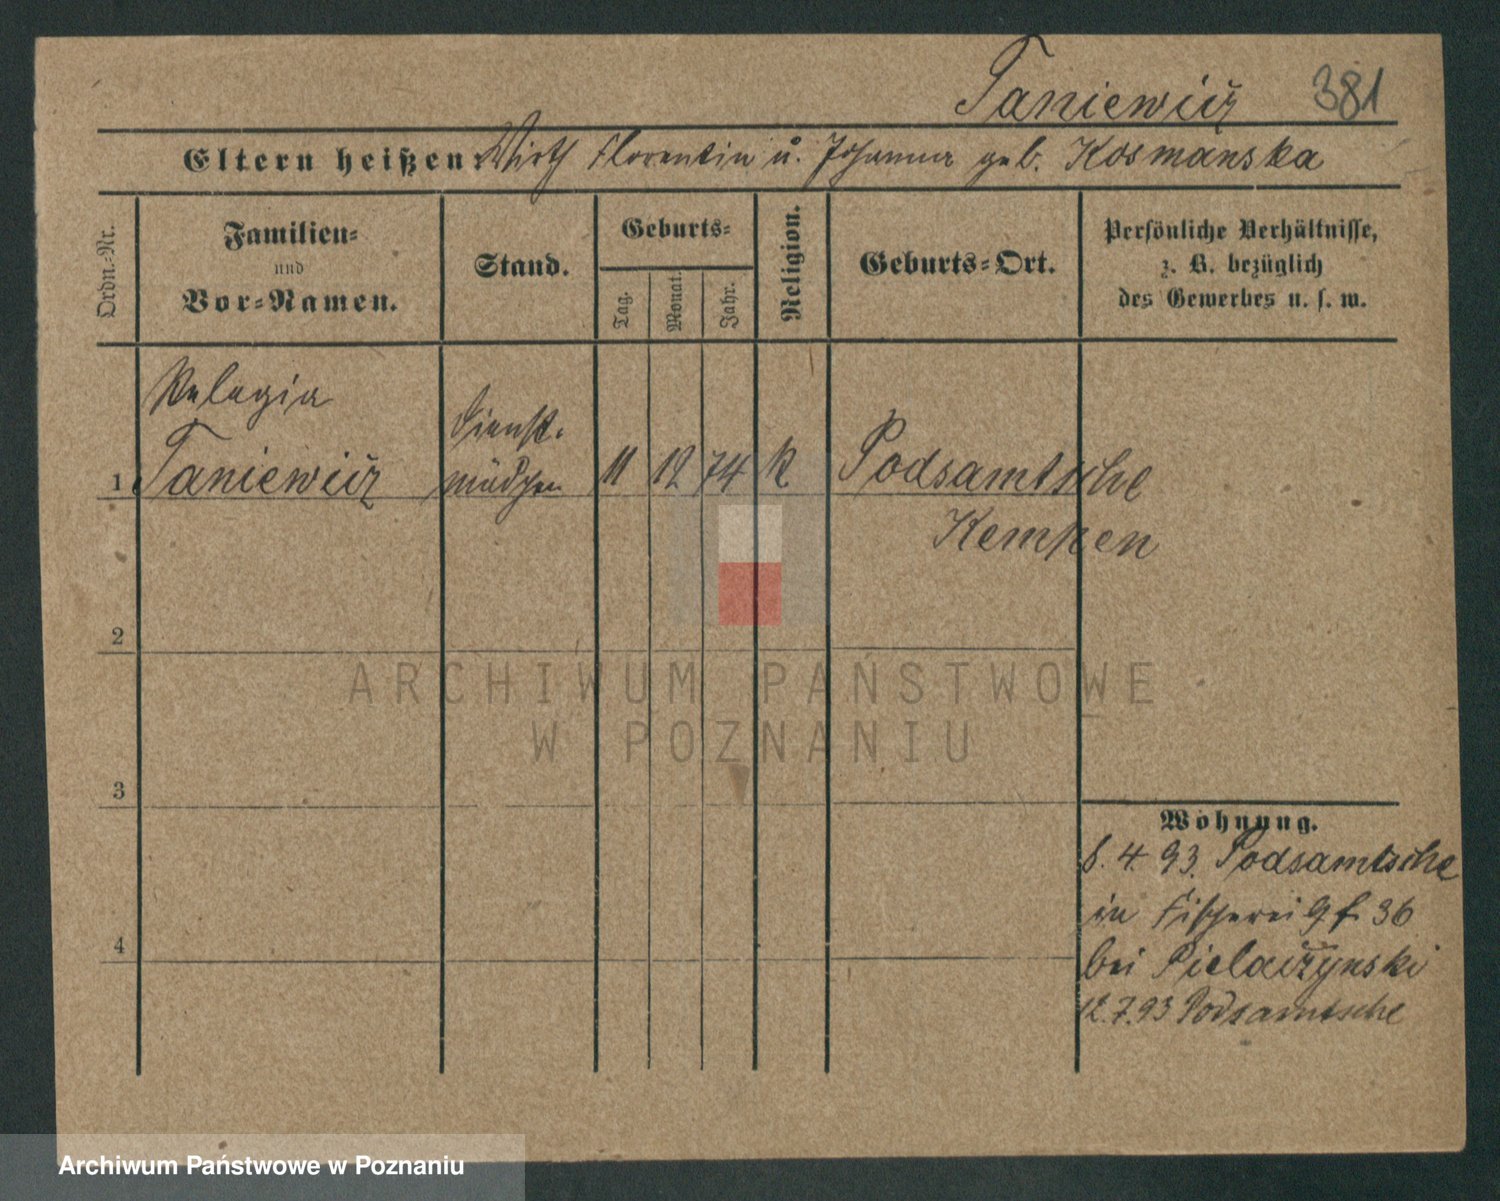 Taniewicz 381
Eltern heißen: Wirth Florentin u. Johanna geb. Kosmanska
Ordn.-Nr.
Familien-
und
Vor-Namen.
Stand.
Geburts-
Tag.
Monat.
Jahr.
Religion.
Geburts-Ort.
Persönliche Verhältnisse,
z. B. bezüglich
des Gewerbes u. s. w.
Pelagia
1 Taniewicz
Dienst-
mädchen
11 12 74 k Podsamtsche
Kempen
2
3
4
ARCHIWUM PAŃSTWOWE
W POZNANIU
Wohnung.
8. 4. 93. Podsamtsche
in Fischerei 36
bei
12.7.93 Podsamtsche
Archiwum Państwowe w Poznaniu